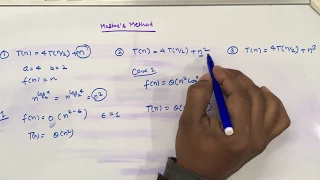 Master's Method
① T(n) = 4T(n/2) + n
a = 4 b = 2
f(n) = n
n^log_b a = n^log_2 4 = n²
f(n) = O(n^2-ε) ε = 1
T(n) = Θ(n²)
② T(n) = 4T(n/2) + n²
Case 2
f(n) = Θ(n²
T(n) = Θ(n
③ T(n) = 4T(n/2) + n³